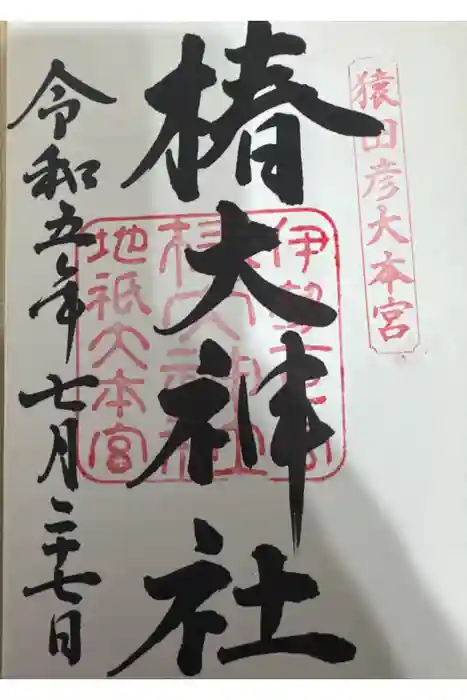 猿田彦大本宮
椿大神社
伊勢一宮
椿大神社
地祇大本宮
令和五年七月二十七日